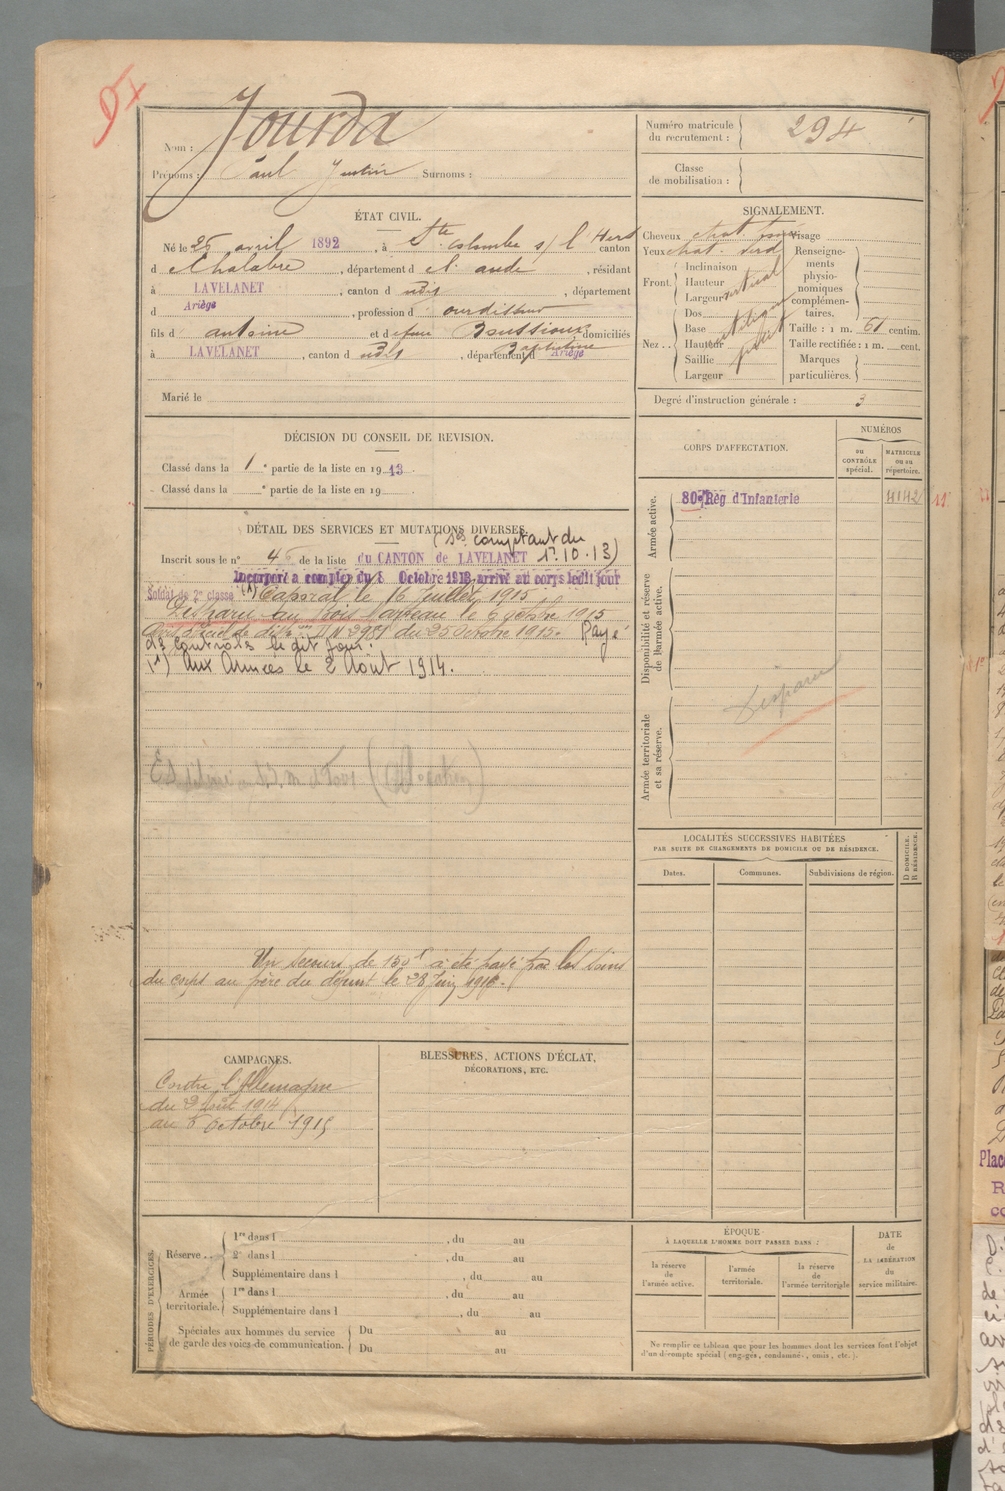 Jourda
Nom :
Prénoms : Paul Justin Surnoms :
Numéro matricule du recrutement : 294
Classe de mobilisation :
ÉTAT CIVIL.
Né le 25 avril 1892, à Ste Colombe s/ l'Hers canton
d Chalabre, département d el aude, résidant
à LAVELANET, canton d udit, département
d Ariège, profession d ourdisseur
fils d' antoine et d efeue Boussioux domiciliés
Baptistine
à LAVELANET, canton d udit, département d Ariège
Marié le
SIGNALEMENT.
Cheveux chat. Visage
Yeux chat. verd
Front. Inclinaison
Hauteur
Largeur vertical
Nez.. Dos
Base
Hauteur
Saillie petit
Largeur
Renseignements physionomiques complémentaires.
Taille : 1 m. 61 centim.
Taille rectifiée : 1 m. cent.
Marques particulières.
Degré d'instruction générale : 3
DÉCISION DU CONSEIL DE REVISION.
Classé dans la 1e partie de la liste en 1913.
Classé dans la e partie de la liste en 19
CORPS D'AFFECTATION.
NUMÉROS
au CONTRÔLE spécial.
MATRICULE ou au répertoire.
Armée active.
80e Rég d'Infanterie 4142
Disponibilité et réserve de l'armée active.
Disparu
Armée territoriale et sa réserve.
DÉTAIL DES SERVICES ET MUTATIONS DIVERSES.
(Ses comptant du
1.10.13)
Inscrit sous le n° 46 de la liste du CANTON de LAVELANET
Incorporé à compter du 8 Octobre 1913 arrivé au corps ledit jour
Soldat de 2e classe (1) Caporal le 16 juillet 1915
Disparu au bois Raqueau le 6 octobre 1915
Avis officiel de disp.on N° 2981 du 25 octobre 1915. Rayé
des controles le dit jour.
(1) Aux Armées le 2 Août 1914.
Un secours de 150f a été payé par les soins
du corps au père du défunt le 28 Juin 1916.
LOCALITÉS SUCCESSIVES HABITÉES
PAR SUITE DE CHANGEMENTS DE DOMICILE OU DE RÉSIDENCE.
Dates. Communes. Subdivisions de région. D DOMICILE. R RÉSIDENCE.
CAMPAGNES.
Contre l'Allemagne
du 2 Août 1914
au 6 octobre 1915
BLESSURES, ACTIONS D'ÉCLAT,
DÉCORATIONS, ETC.
PÉRIODES D'EXERCICES.
Réserve .. 1re dans l , du au
2e dans l , du au
Supplémentaire dans l , du au
Armée territoriale. 1re dans l , du au
Supplémentaire dans l , du au
Spéciales aux hommes du service de garde des voies de communication. Du au
Du au
ÉPOQUE
À LAQUELLE L'HOMME DOIT PASSER DANS :
la réserve de l'armée active.
l'armée territoriale.
la réserve de l'armée territoriale
DATE de LA LIBÉRATION du service militaire.
Ne remplir ce tableau que pour les hommes dont les services font l'objet
d'un décompte spécial (engagés, condamnés, omis, etc.).